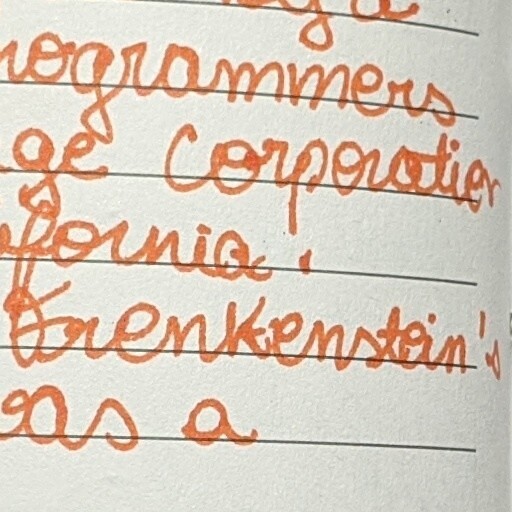 rogrammers
ge Corporation
fornia.
Frenkenstein's
was a